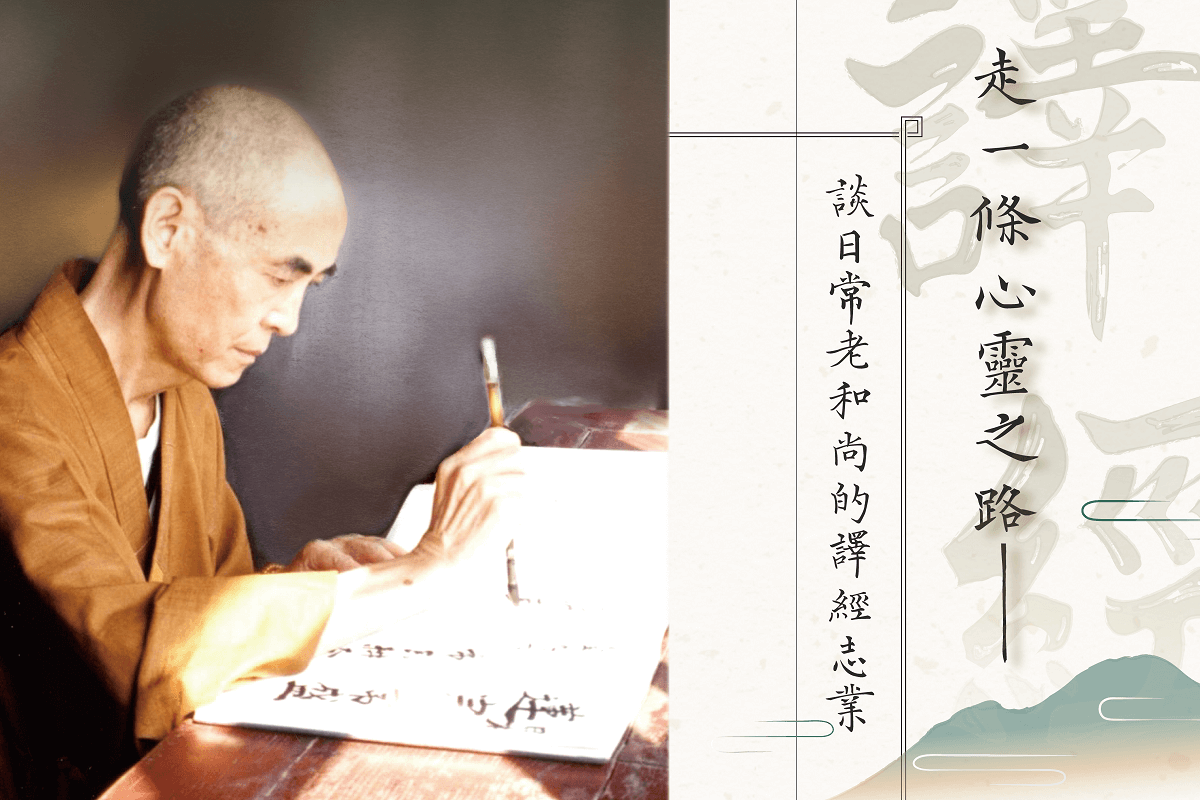 走一條心靈之路——
談日常老和尚的譯經志業
譯經